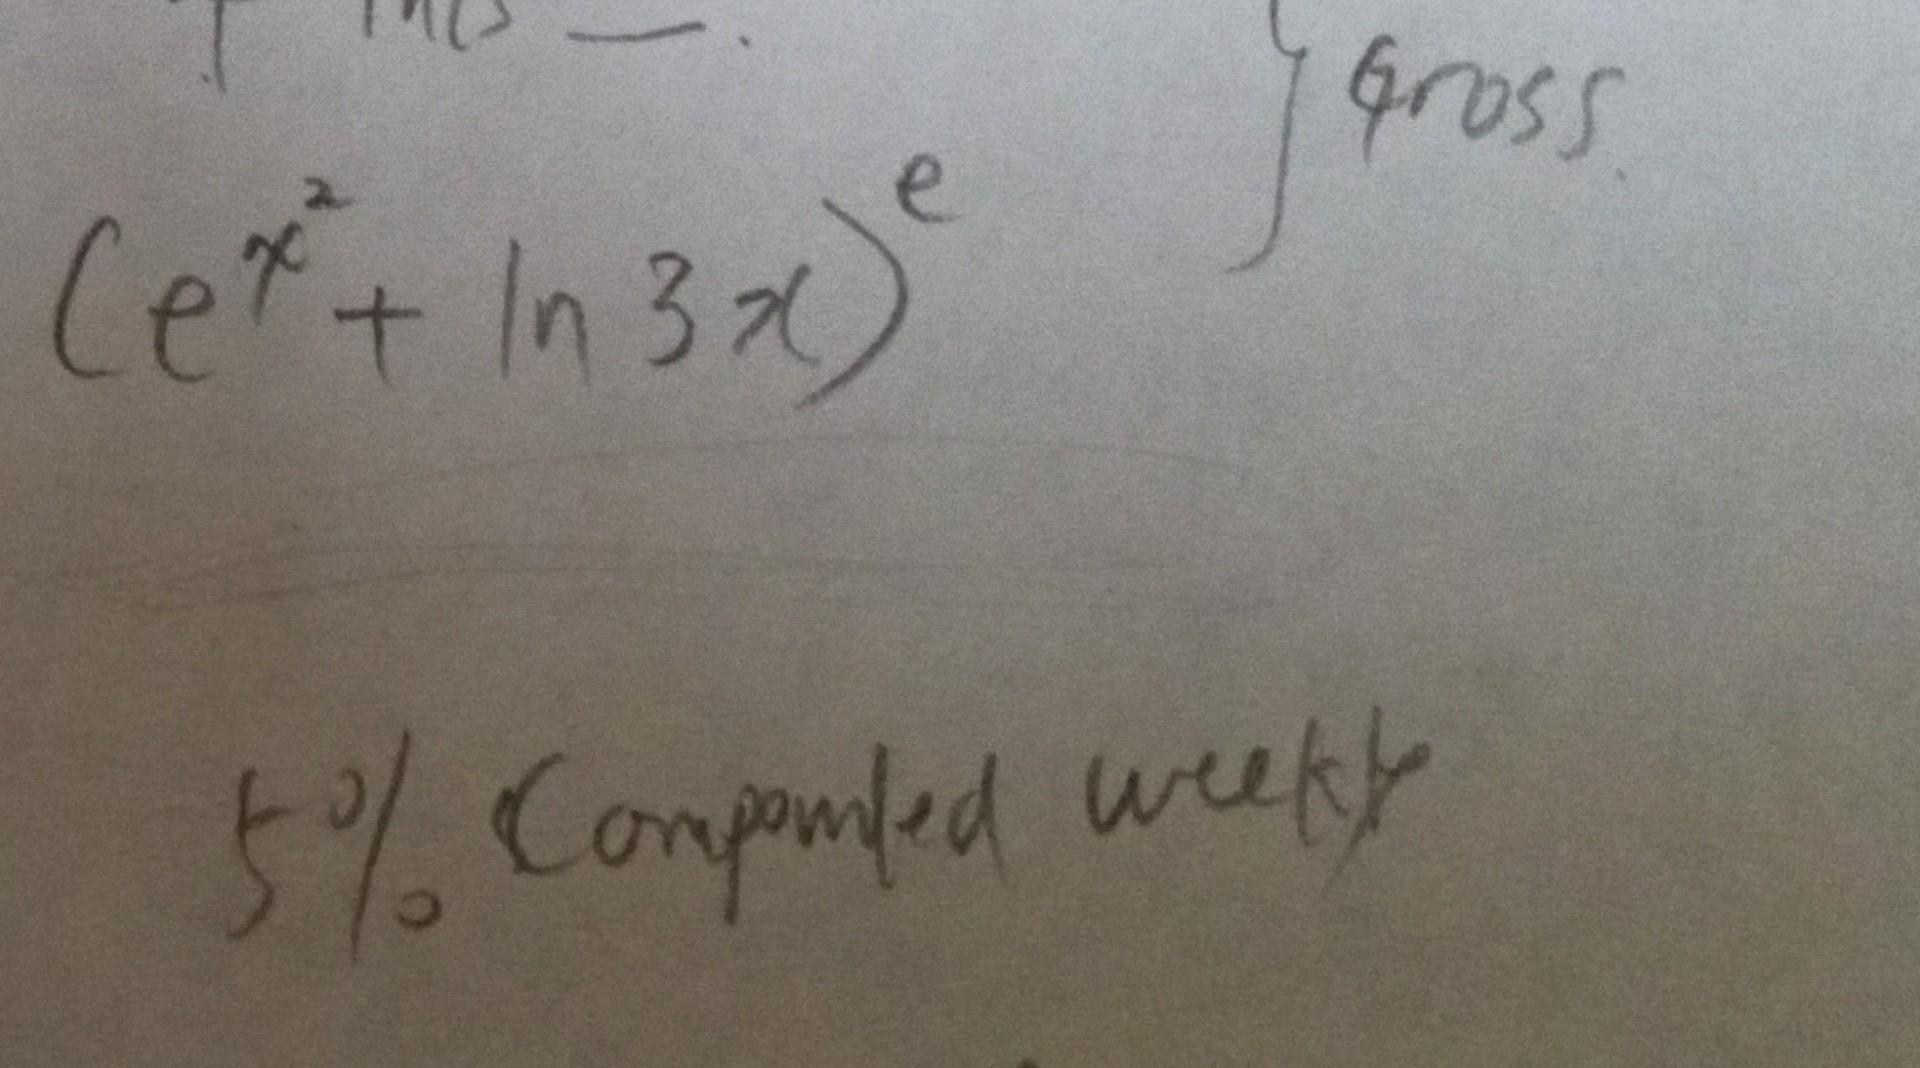 Gross.
(e^x^2 + ln 3x)^e
5% Compounded weekly